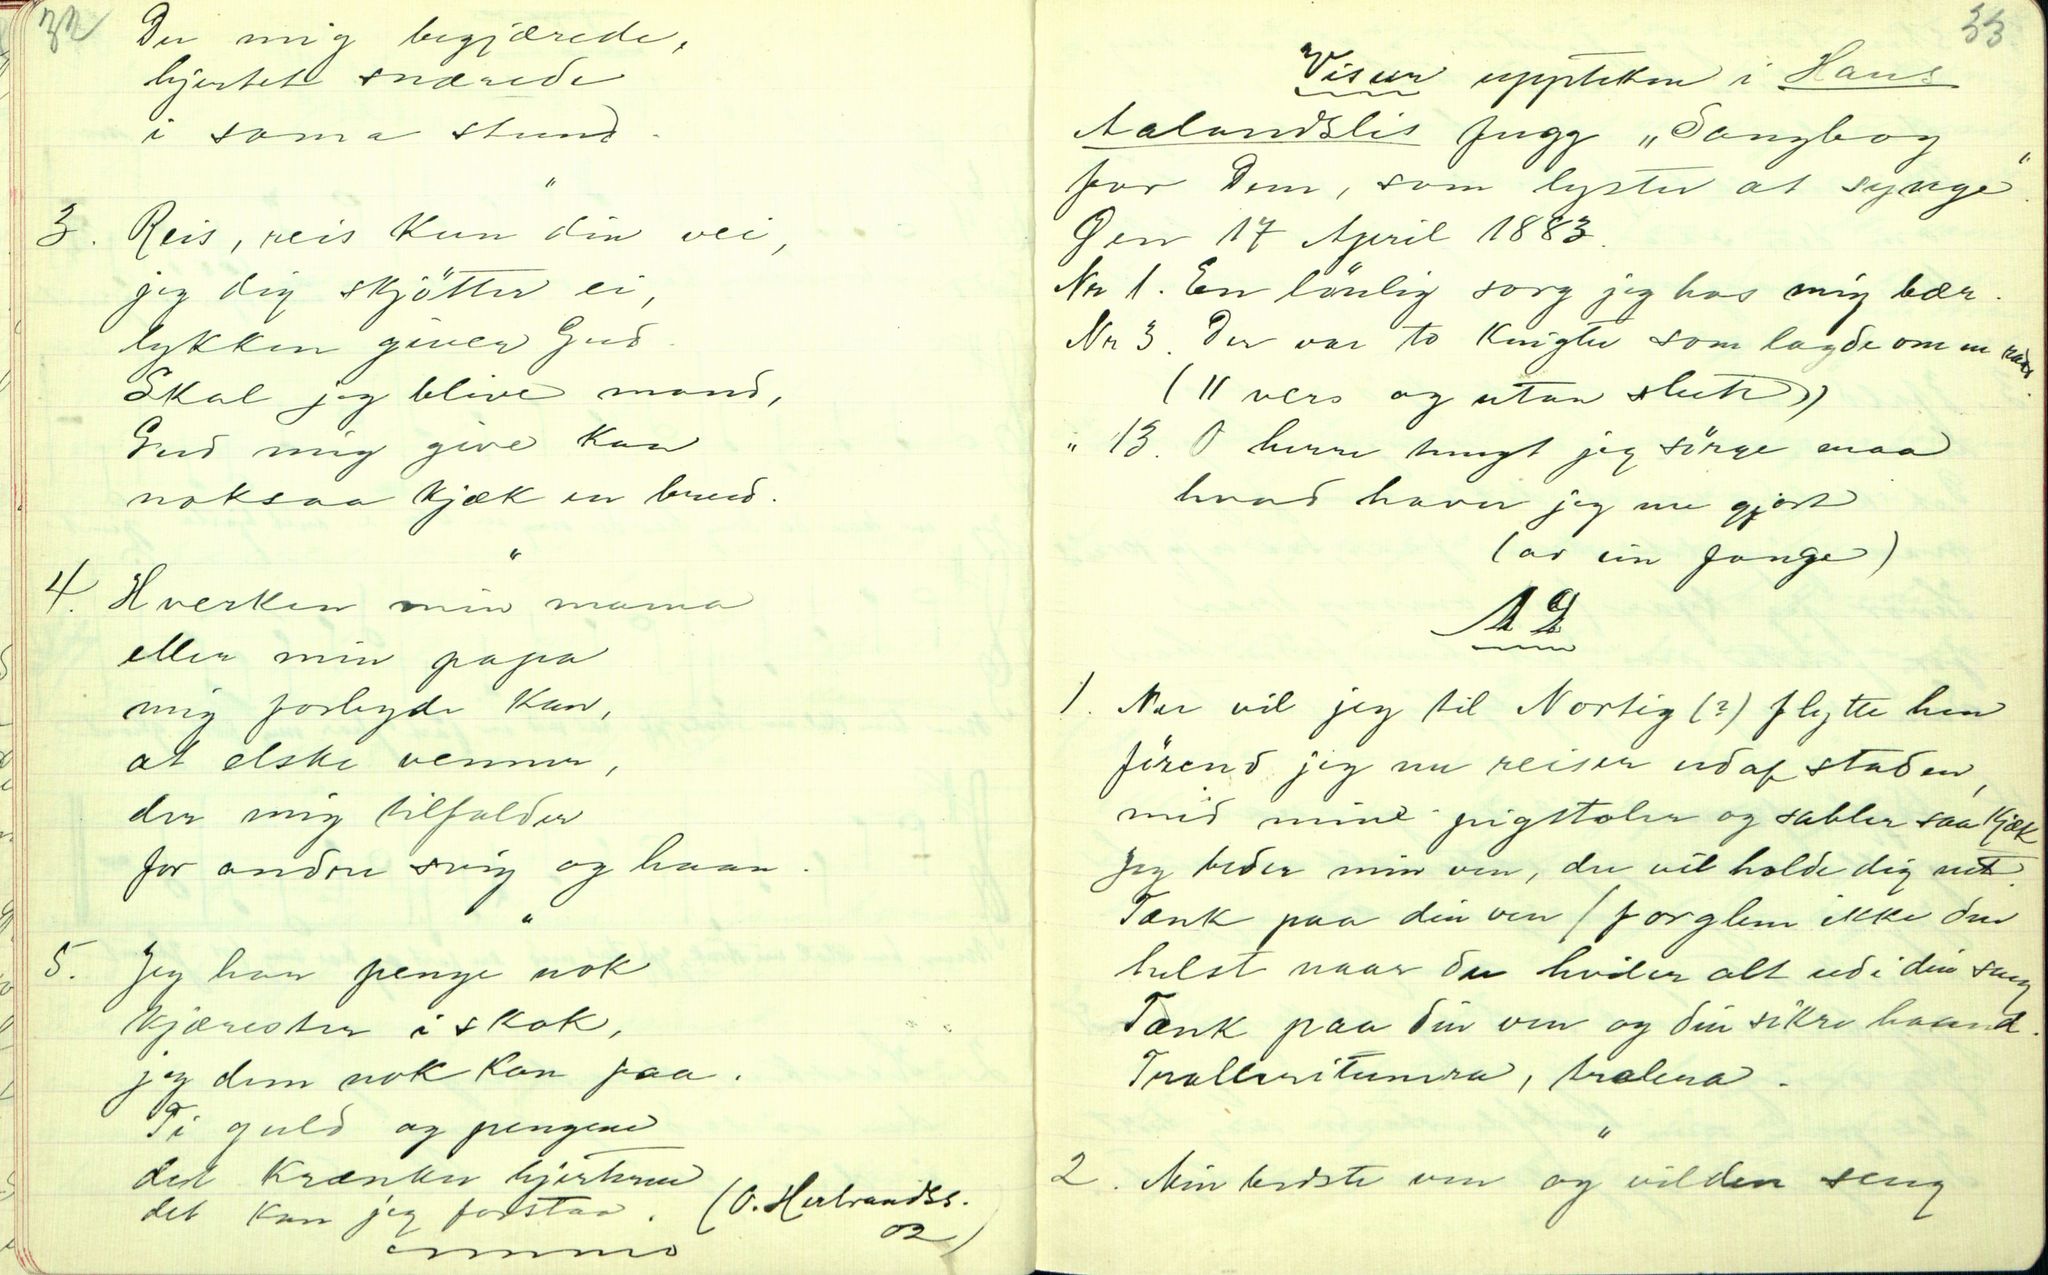 32
Du mig begjærede,
hjertet snærede
i sama stund.
"
3. Reis, reis kun din vei,
jeg dig skjötter ei,
lykken giver Gud.
Skal jeg blive mand,
Gud mig give kan
noksaa kjæk en brud.
"
4. Hverken min mama
eller min papa
mig forbyde kan,
at elske venner,
der mig tilfalder
for andre svig og haan.
"
5. Jeg har penge nok
kjærester i skok,
jeg dem nok kan faa.
Ti guld og pengene
det krænker hjerterne
det kan jeg forstaa. (O. Herbrandss.
02)
33
Visur uppteken i Hans
Aalandslis fugg „Sangbog
for Dem, som lyster at synge".
Den 17 April 1883.
Nr 1. En lönlig sorg jeg hos mig bær.
Nr 3. Der var to knigter som lagde om en
(11 vers og utan slut)
" 13. O herre tungt jeg sörge maa
hvad haver jeg nu gjort
(av ein fange)
12
1. Nu vil jeg til Nortig (?) flytte hen
förend jeg nu reiser udaf staden,
med mine pigstoler og sabler saa kjæk
Jeg beder min ven, du vil holde dig net.
Tænk paa din ven / forglem ikke den
helst naar du hviler alt udi din seng
Tænk paa din ven og din sikre haand.
Tralleritumra, tralera.
"
2. Min bedste ven og vilden seng